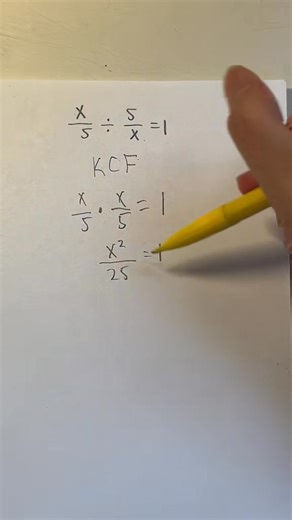 x/5 ÷ 5/x = 1
KCF
x/5 · x/5 = 1
x²/25 = 1